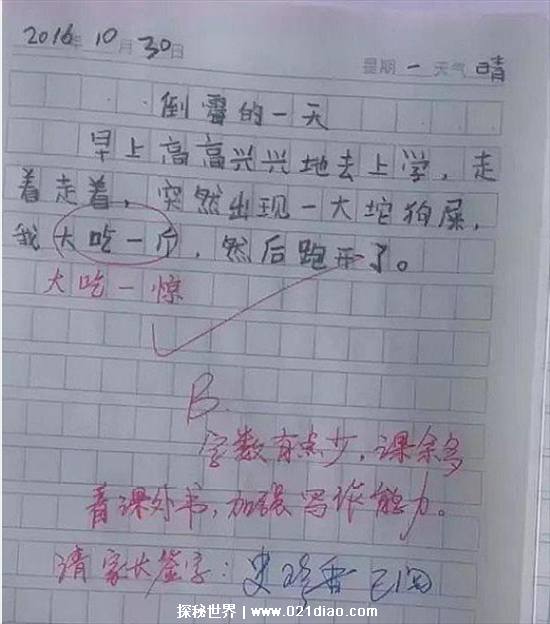 2016年10月30日
星期一 天气晴
倒霉的一天
早上高高兴兴地去上学,走
着走着,突然出现一大坨狗屎,
我大吃一斤,然后跑开了。
大吃一惊
B.
字数有点少,课余多
看课外书,加强写作能力。
请家长签字:史珍香 已阅
探秘世界|www.021diao.com